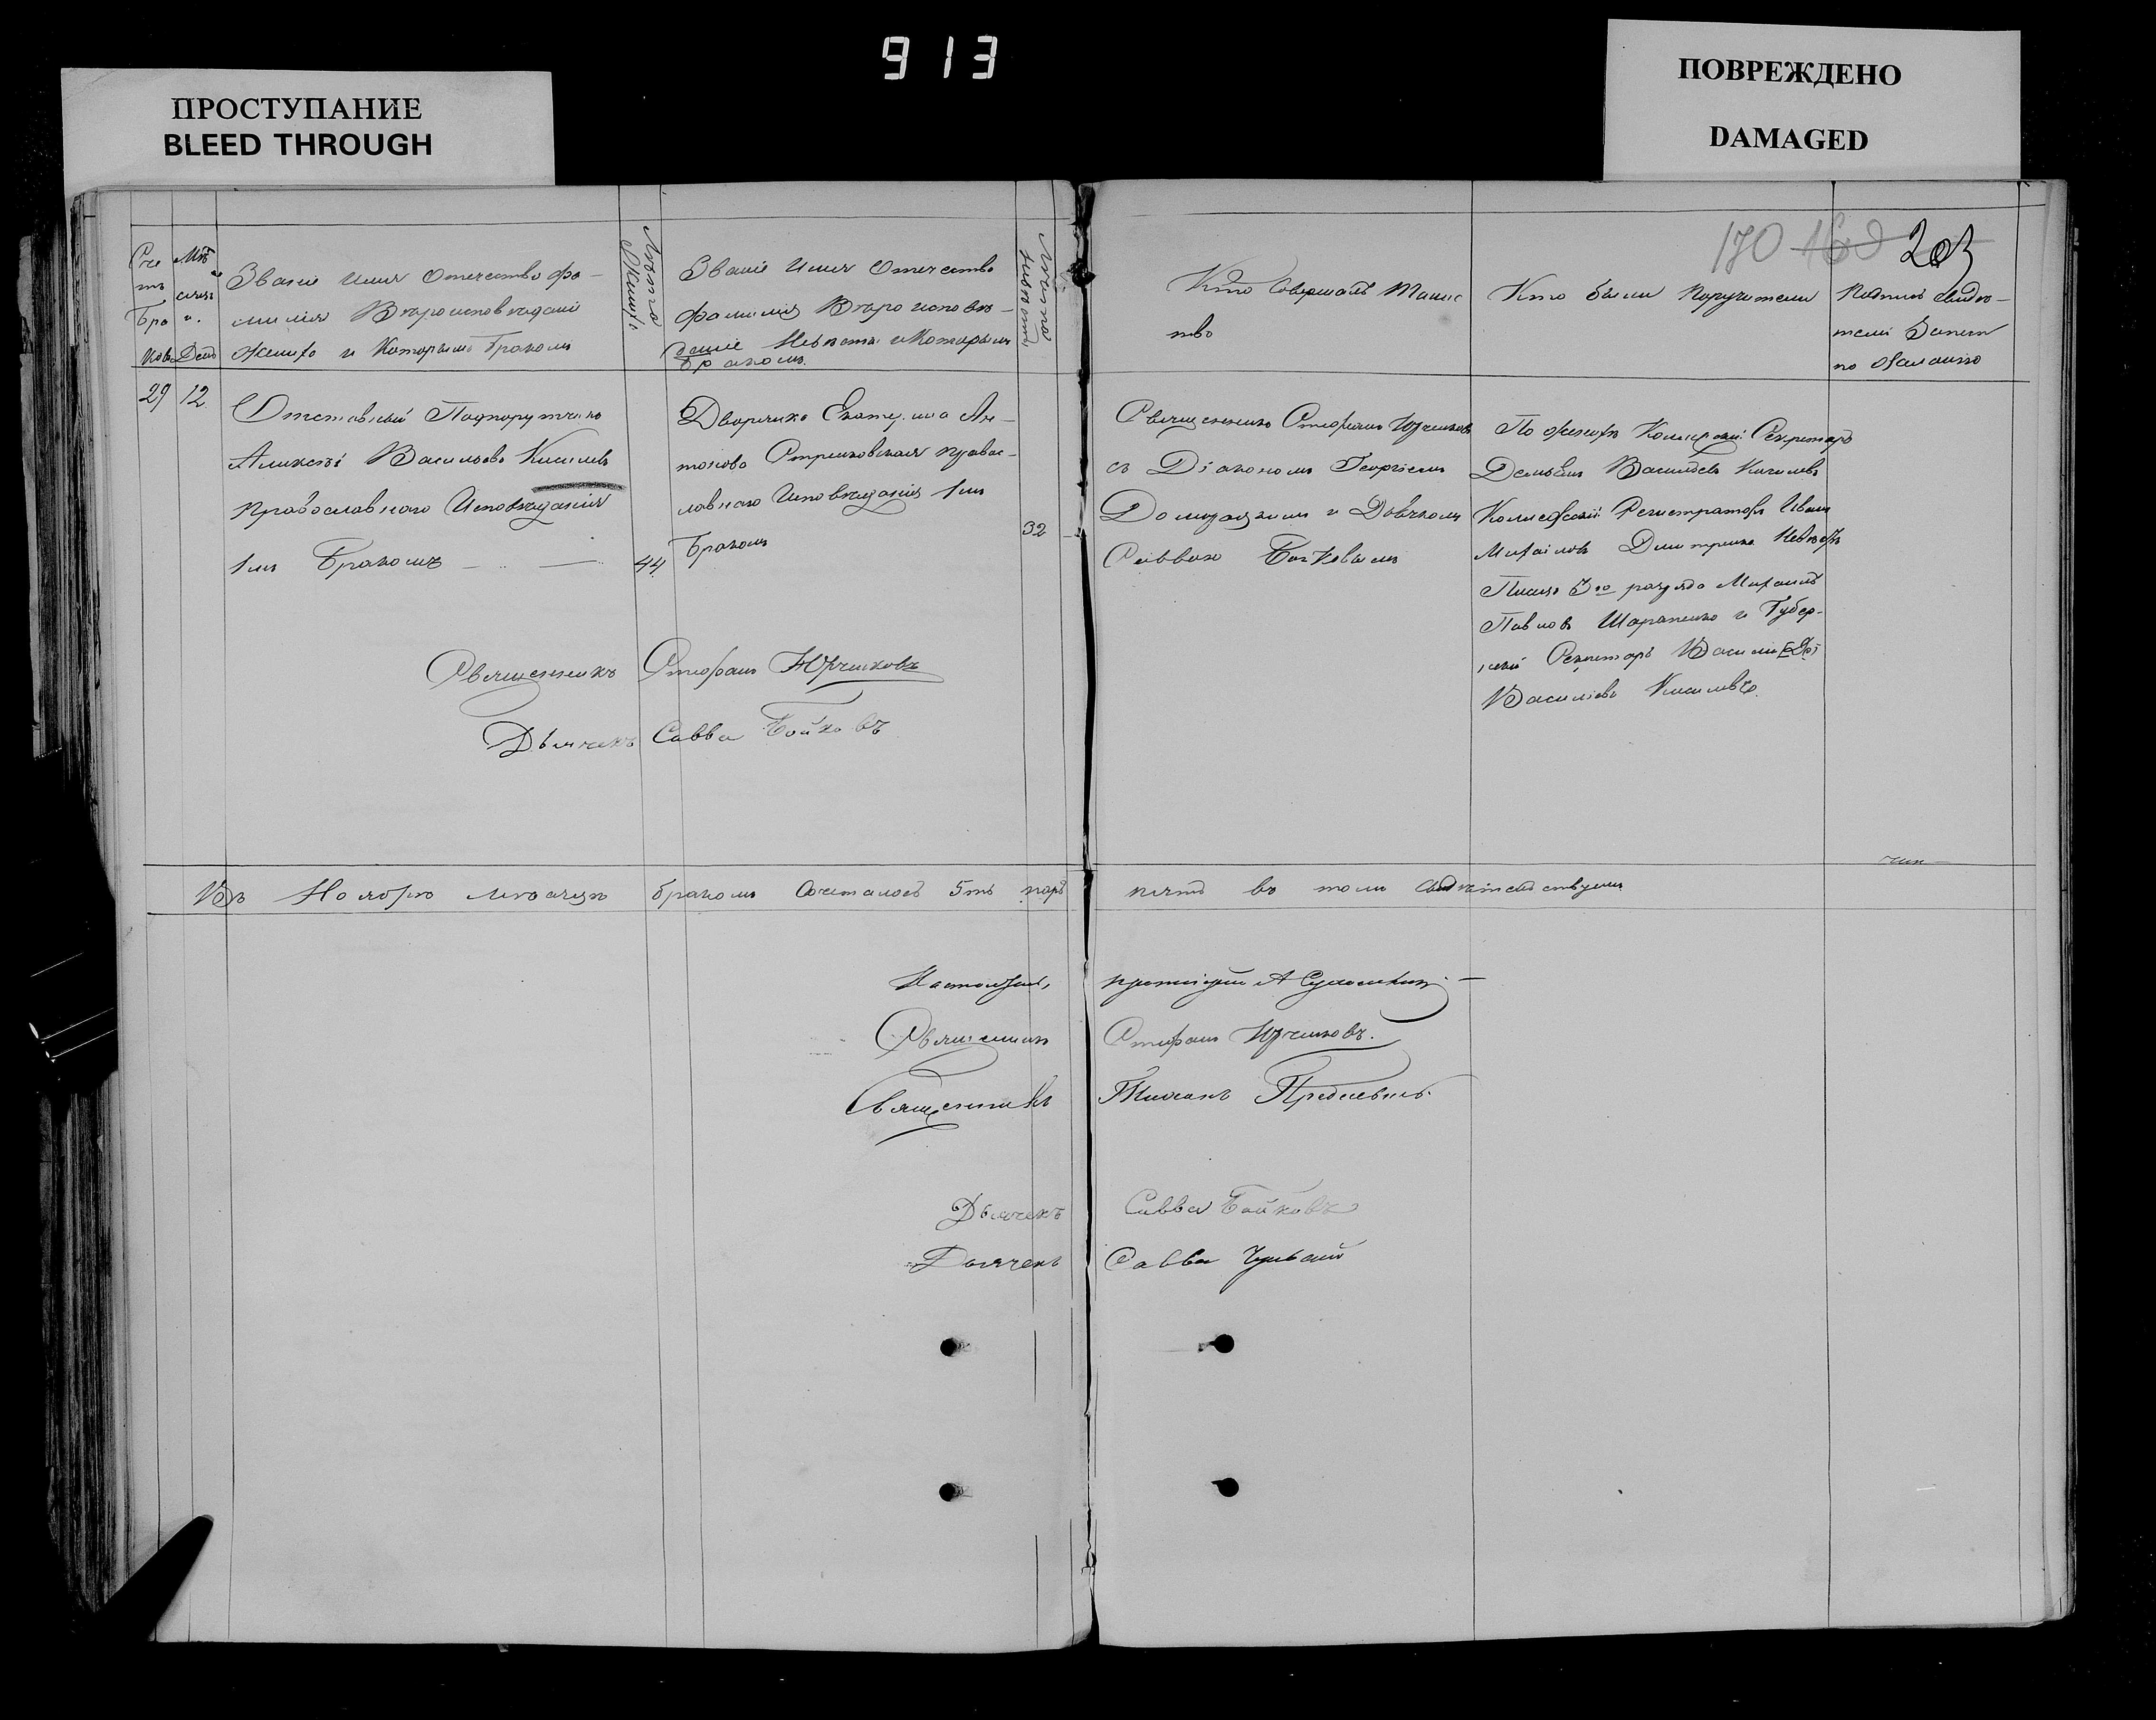 913
ПРОСТУПАНИЕ
BLEED THROUGH
ПОВРЕЖДЕНО
DAMAGED
170 160 203
Счетъ Браковъ
Мѣсяцъ и День
Званіе Имя Отечество фа-
милія Вѣроисповѣданіе
Жениха и Которымъ Бракомъ
Лѣта Жениха
Званіе Имя Отечество
фамилія Вѣроисповѣ-
даніе Невѣсты и Которымъ
Бракомъ.
Лѣта невѣсты
Кто Совершалъ Таинс
тво
Кто были Поручители
Подпись свидѣ-
телей Записи
по желанію
29 12
Отставный Подпорутчикъ
Алексѣй Васильевъ Киселевъ
православнаго Исповѣданія
1мъ Бракомъ
44
Дворянка Екатерина Ан-
тонова православ-
лавнаго Исповѣданія 1мъ
Бракомъ
32
Священникъ Стефанъ Юрченковъ
съ Діакономъ Георгіемъ
и Дьячкомъ
Саввою Бойковымъ
По женихѣ Секретарь
Васильевъ Киселевъ
Регистраторъ Иванъ
Михаиловъ Дмитренко Невѣстѣ
Писарь разряда Михаилъ
Павловъ и Губер-
нскій Секретарь Василій
Васильевъ Киселевъ.
Священникъ Стефанъ Юрченковъ
Дьячекъ Савва Бойковъ
Въ Ноябрѣ мѣсяцѣ бракомъ Сочеталось 5ть паръ пять въ томъ свидѣтельствуемъ
протоіерей А
Священникъ Стефанъ Юрченковъ.
Священникъ
Дьячекъ Савва Бойковъ
Дьячекъ Савва